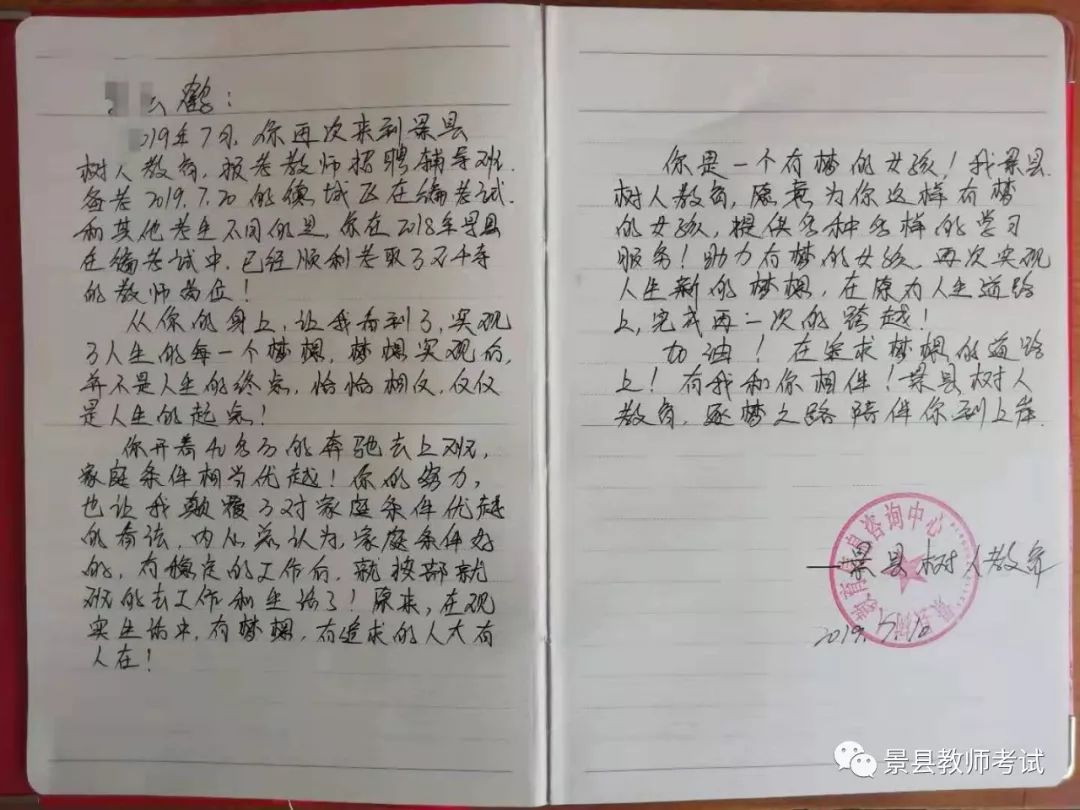 鹤：
19年7月，你再次来到景县
树人教育，报考教师招聘辅导班.
备考2019.7.20的德城区在编考试.
和其他考生不同的是，你在2018年景县
在编考试中，已经顺利考取了王千寺
的教师岗位！
从你的身上，让我看到了，实现
了人生的每一个梦想，梦想实现后，
并不是人生的终点，恰恰相反，仅仅
是人生的起点！
你开着40多万的奔驰去上班，
家庭条件相当优越！你的努力，
也让我颠覆了对家庭条件优越
的看法，内心总认为，家庭条件好
的，有稳定的工作后，就按部就
班的去工作和生活了！原来，在现
实生活中，有梦想，有追求的人大有
人在！
你是一个有梦的女孩！我景县
树人教育，愿意为你这样有梦
的女孩，提供各种各样的学习
服务！助力有梦的女孩，再次实现
人生新的梦想，在原有人生道路
上，完成再一次的跨越！
加油！在追求梦想的道路
上！有我和你相伴！景县树人
教育，逐梦之路陪伴你到上岸.
信息咨询中心
—景县树人教育
2019.7.
景县教师考试